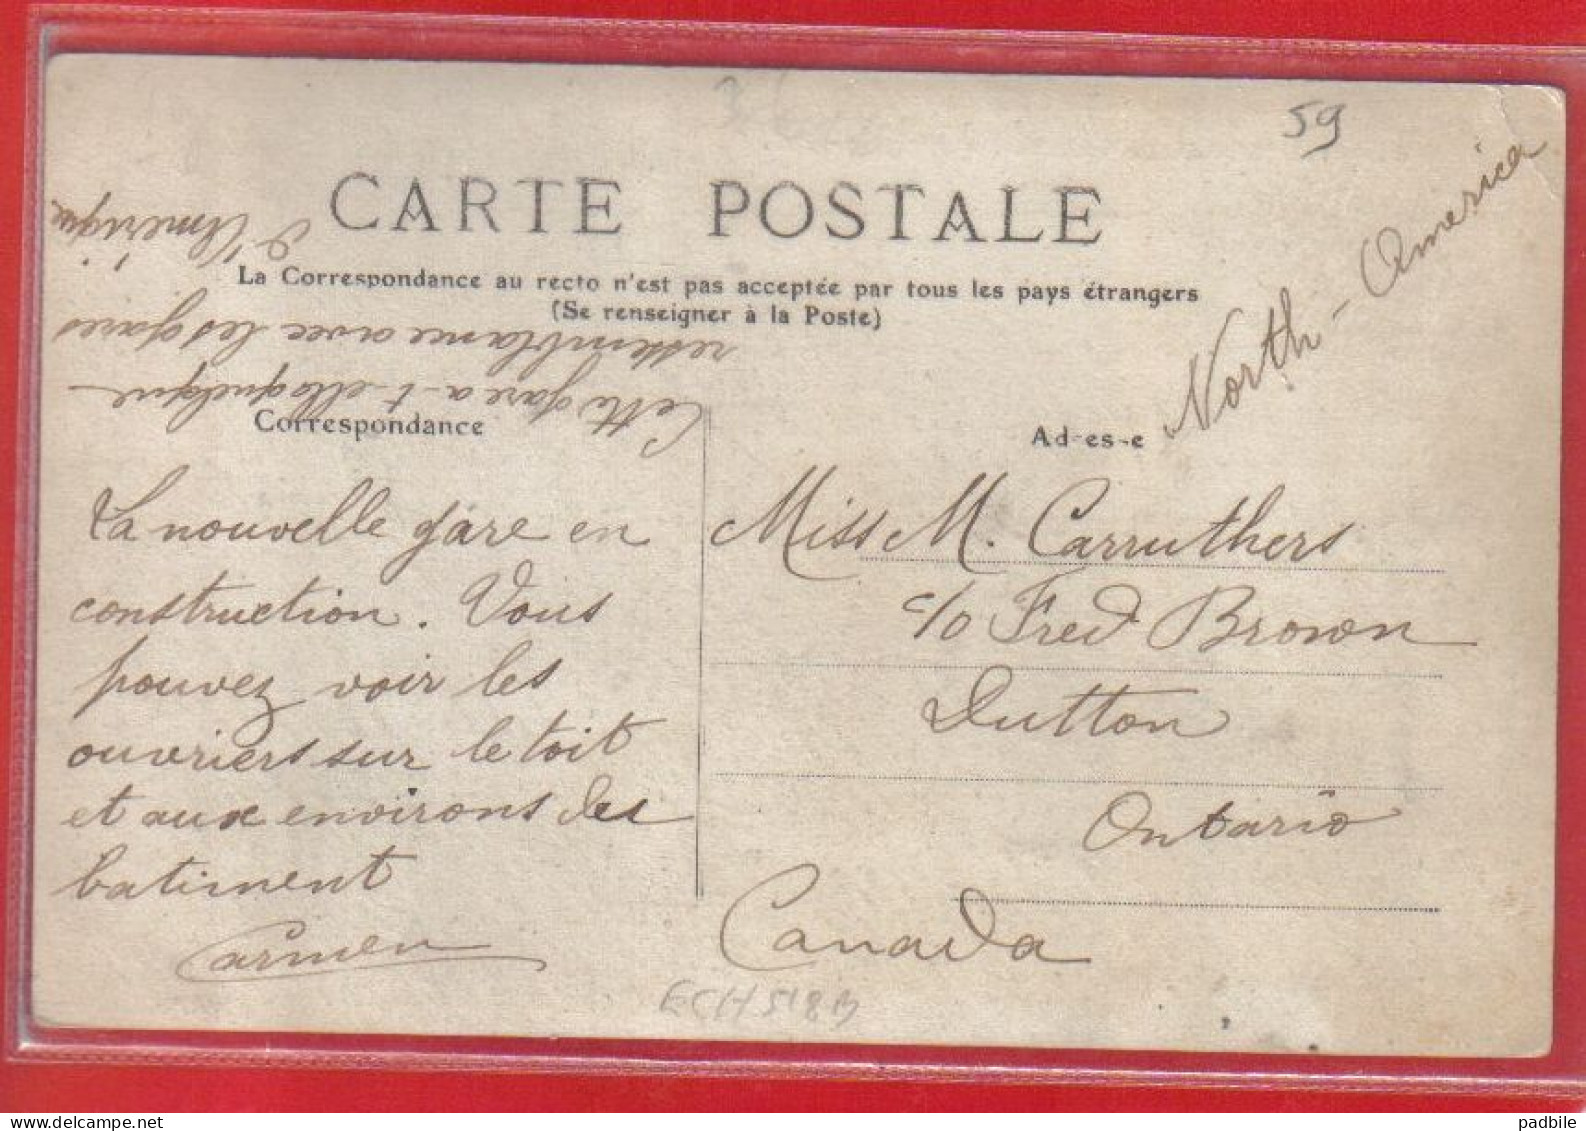 36
59
CARTE POSTALE
La Correspondance au recto n'est pas acceptée par tous les pays étrangers
(Se renseigner à la Poste)
Correspondance
La nouvelle gare en
construction. Vous
pouvez voir les
ouvriers sur le toit
et aux environs des
batiment
Carmen
Cette gare a-t-elle quelque
ressemblance avec les gares
d'Amérique
Ad-es-e
North-America
Miss M. Carruthers
c/o Fred Brown
Dutton
Ontario
Canada
ECH518B
www.delcampe.net
padbile